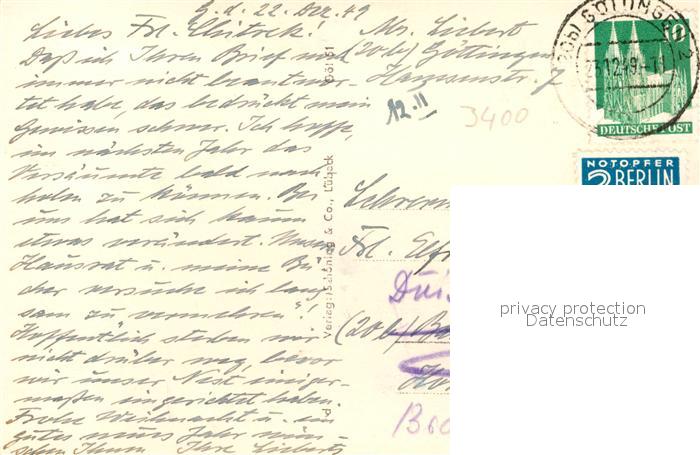 G. d. 22. Dez. 49
Liebes Frl. Mitrek!
Daß ich Ihren Brief noch
immer nicht beantwor-
tet habe, das bedrückt mein
Gewissen schwer. Ich hoffe,
im nächsten Jahr das
Versäumte bald nach-
holen zu können. Bei
uns hat sich kaum
etwas verändert. Unsern
Hausrat u. meine Bü-
cher versuche ich lang-
sam zu vermehren!
Hoffentlich sterben wir
nicht drüber weg, bevor
wir unser Nest einiger-
maßen eingerichtet haben.
Frohe Weihnacht u. ein
gutes neues Jahr wün-
schen Ihnen Ihre Lieberts
Liebert
(20b) Göttingen
7
12. II
3400
GÖTTINGEN
23.12.49.-11
10
DEUTSCHE POST
NOTOPFER
2 BERLIN
Verlag: Schöning & Co., Lübeck
Frl.
Duis
(20b)
privacy protection
Datenschutz